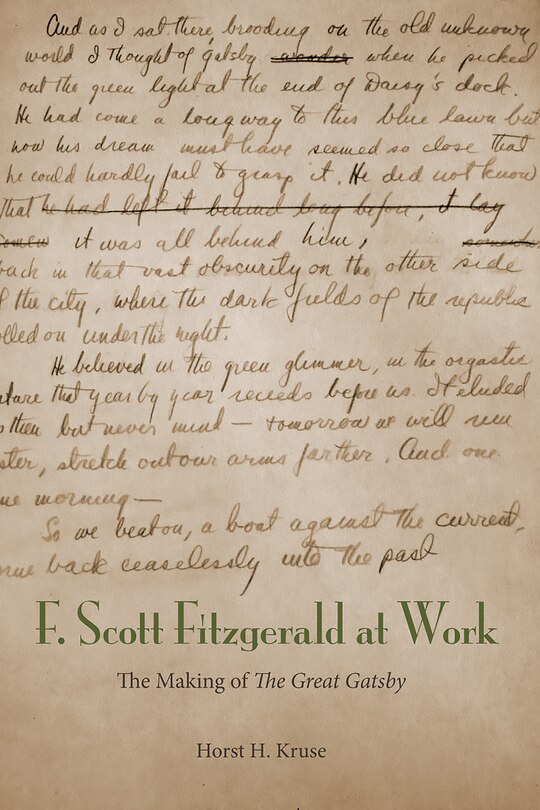 And as I sat there, brooding on the old unknown
world I thought of Gatsby wonder when he picked
out the green light at the end of Daisy's dock.
He had come a long way to this blue lawn but
now his dream must have seemed so close that
he could hardly fail to grasp it. He did not know
that he had left it behind long before, I lay
it was all behind him,
back in that vast obscurity on the other side
f the city, where the dark fields of the republic
olled on under the night.
He believed in the green glimmer, in the orgastic
uture that year by year recedes before us. It eluded
s then but never mind — tomorrow we will run
ster, stretch out our arms farther. And one
ne morning —
So we beat on, a boat against the current,
rne back ceaselessly into the past
F. Scott Fitzgerald at Work
The Making of The Great Gatsby
Horst H. Kruse